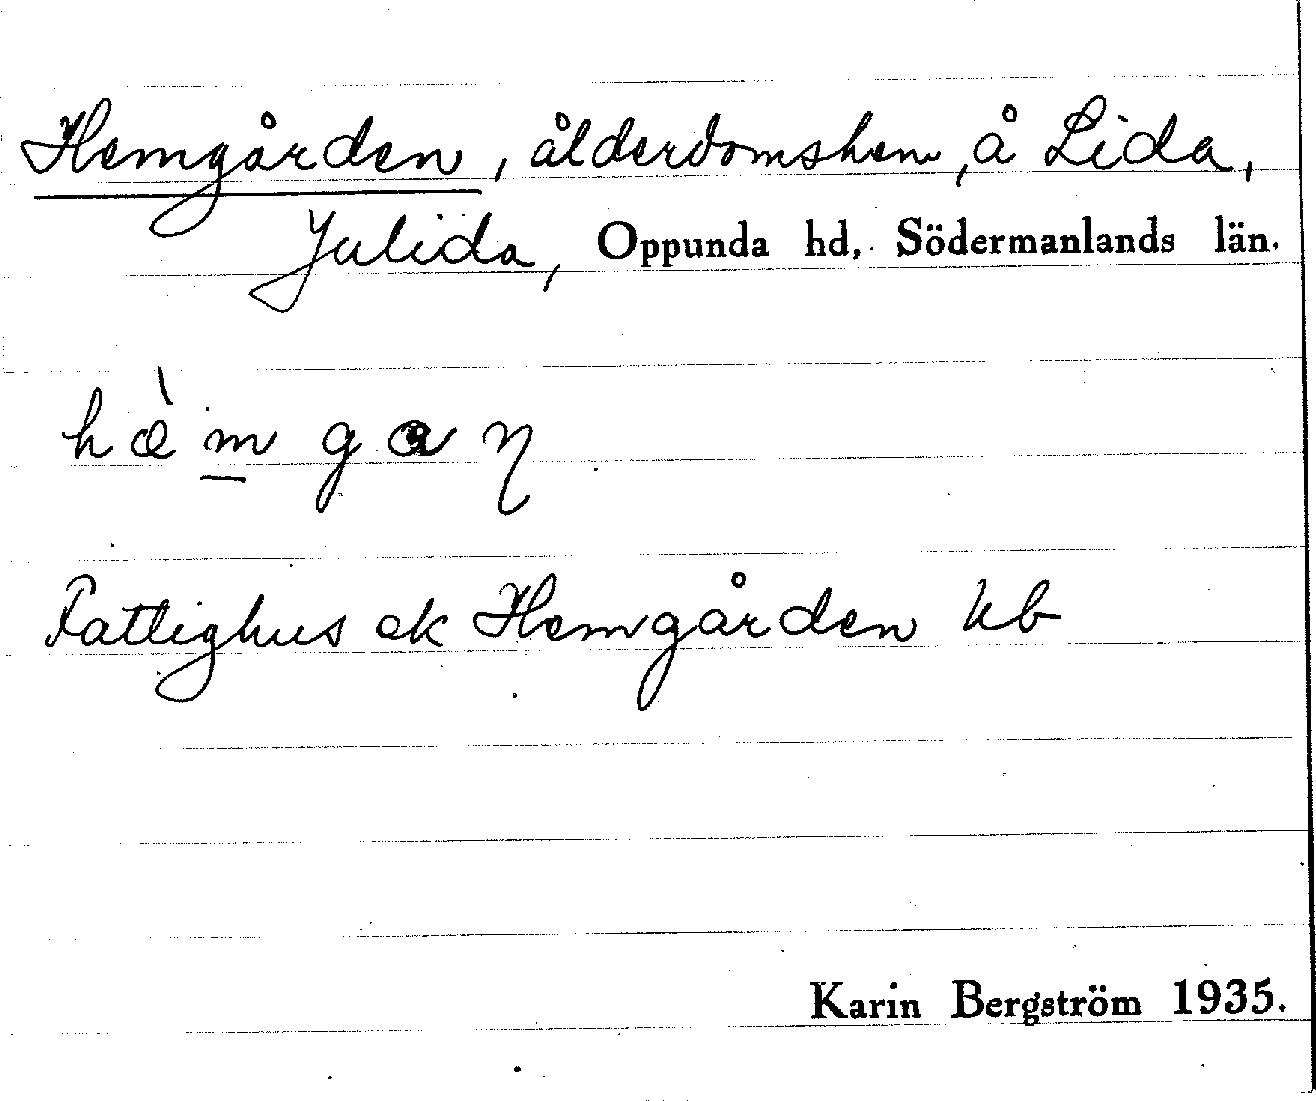 Hemgården, ålderdomshem, å Lida,
Julida, Oppunda hd, Södermanlands län.
hæ̀m̲gaɳ
Fattighus ek Hemgården kb
Karin Bergström 1935.